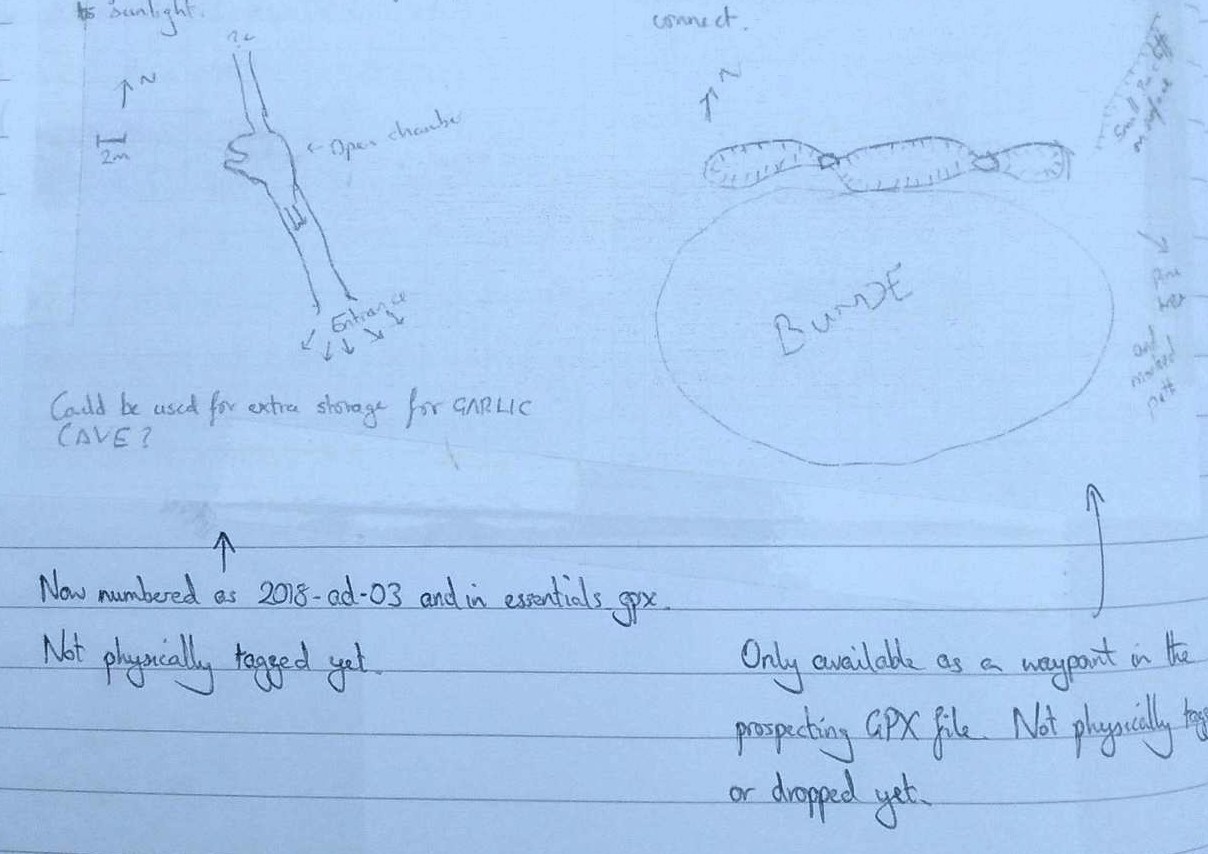 to sunlight.
?
N
2m
← Open chamber
Entrance
Could be used for extra storage for GARLIC
CAVE?
Now numbered as 2018-ad-03 and in essentials gpx.
Not physically tagged yet.
connect.
N
Small
BUNDE
pine
tree
and
marked
path
Only available as a waypoint in the
prospecting GPX file. Not physically tag
or dropped yet.